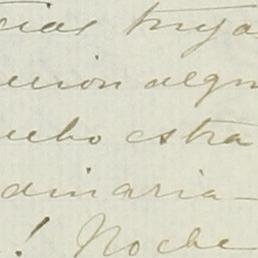 cias tuyas
cucion algu
ucho estra
dinaria-
! Noche